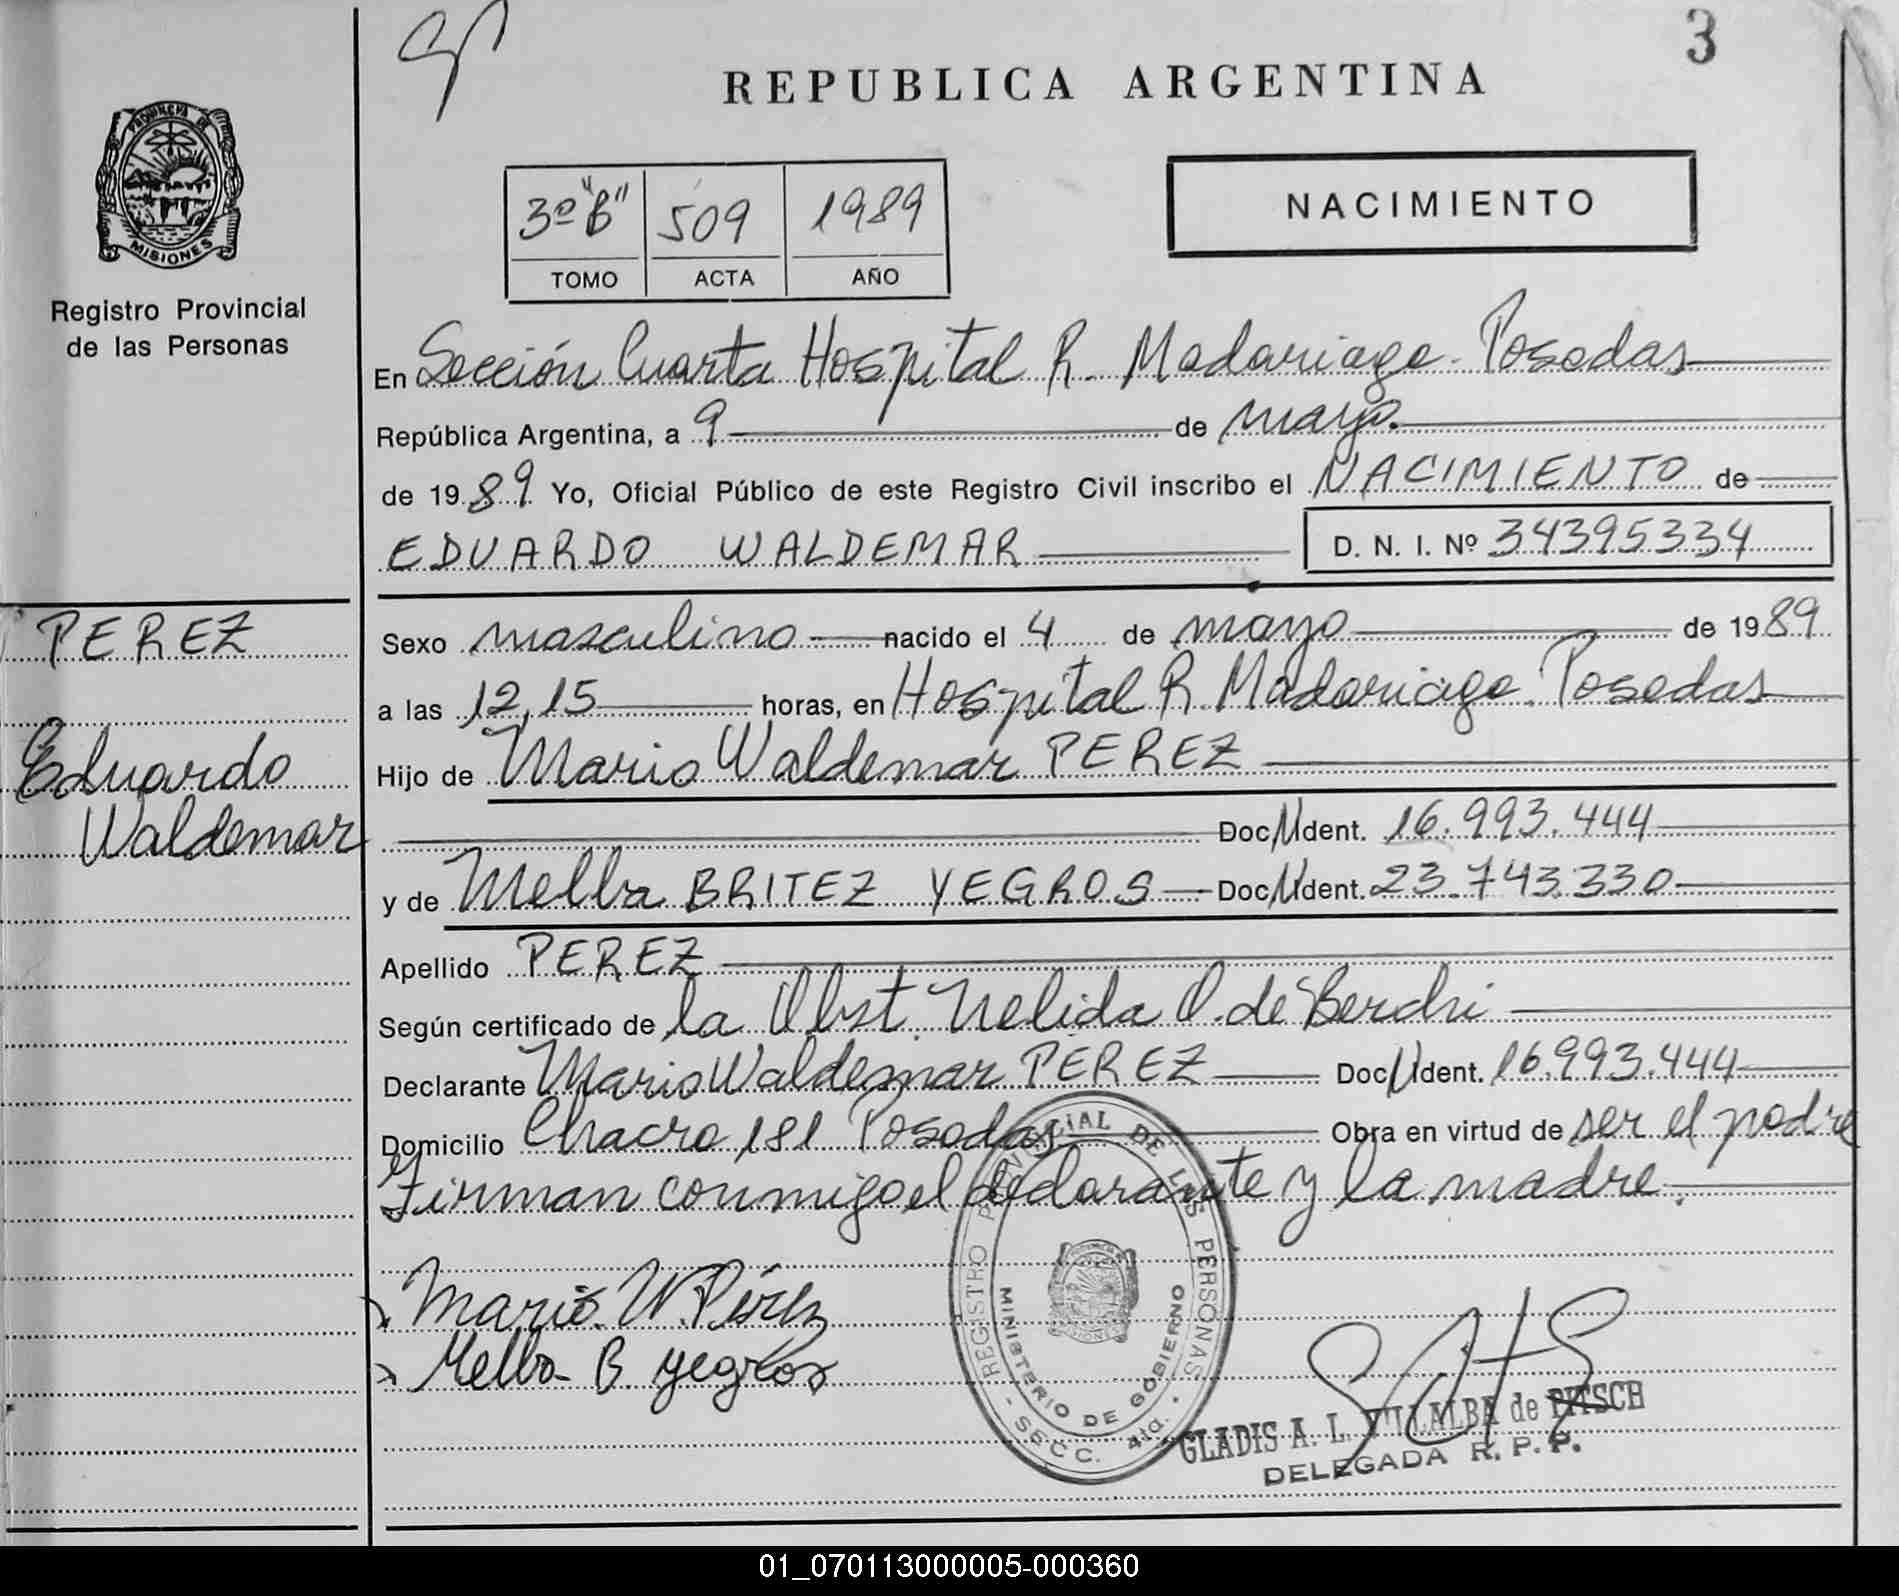 3
REPUBLICA ARGENTINA
PROVINCIA DE
MISIONES
Registro Provincial
de las Personas
3º "B" 509 1989
TOMO ACTA AÑO
NACIMIENTO
En Sección Cuarta Hospital R. Madariaga - Posadas
República Argentina, a 9 de mayo.
de 1989 Yo, Oficial Público de este Registro Civil inscribo el NACIMIENTO de
EDUARDO WALDEMAR D. N. I. Nº 34395334
PEREZ
Eduardo
Waldemar
Sexo masculino nacido el 4 de mayo de 1989
a las 12,15 horas, en Hospital R. Madariaga. Posadas
Hijo de Mario Waldemar PEREZ
Doc. Ident. 16.993.444
y de Melba BRITEZ YEGROS Doc. Ident. 23.743.330
Apellido PEREZ
Según certificado de la Obst. Nelida O. de
Declarante Mario Waldemar PEREZ Doc. Ident. 16.993.444
Domicilio Chacra 181 Posadas Obra en virtud de ser el padre
Firman conmigo el declarante y la madre.
Mario W. Pérez
Melba B. Yegros
REGISTRO PROVINCIAL DE LAS PERSONAS
MINISTERIO DE GOBIERNO
- SECC. 4ta. -
GLADIS A. L. VILLALBA de PITSCH
DELEGADA R. P. P.
01_070113000005-000360